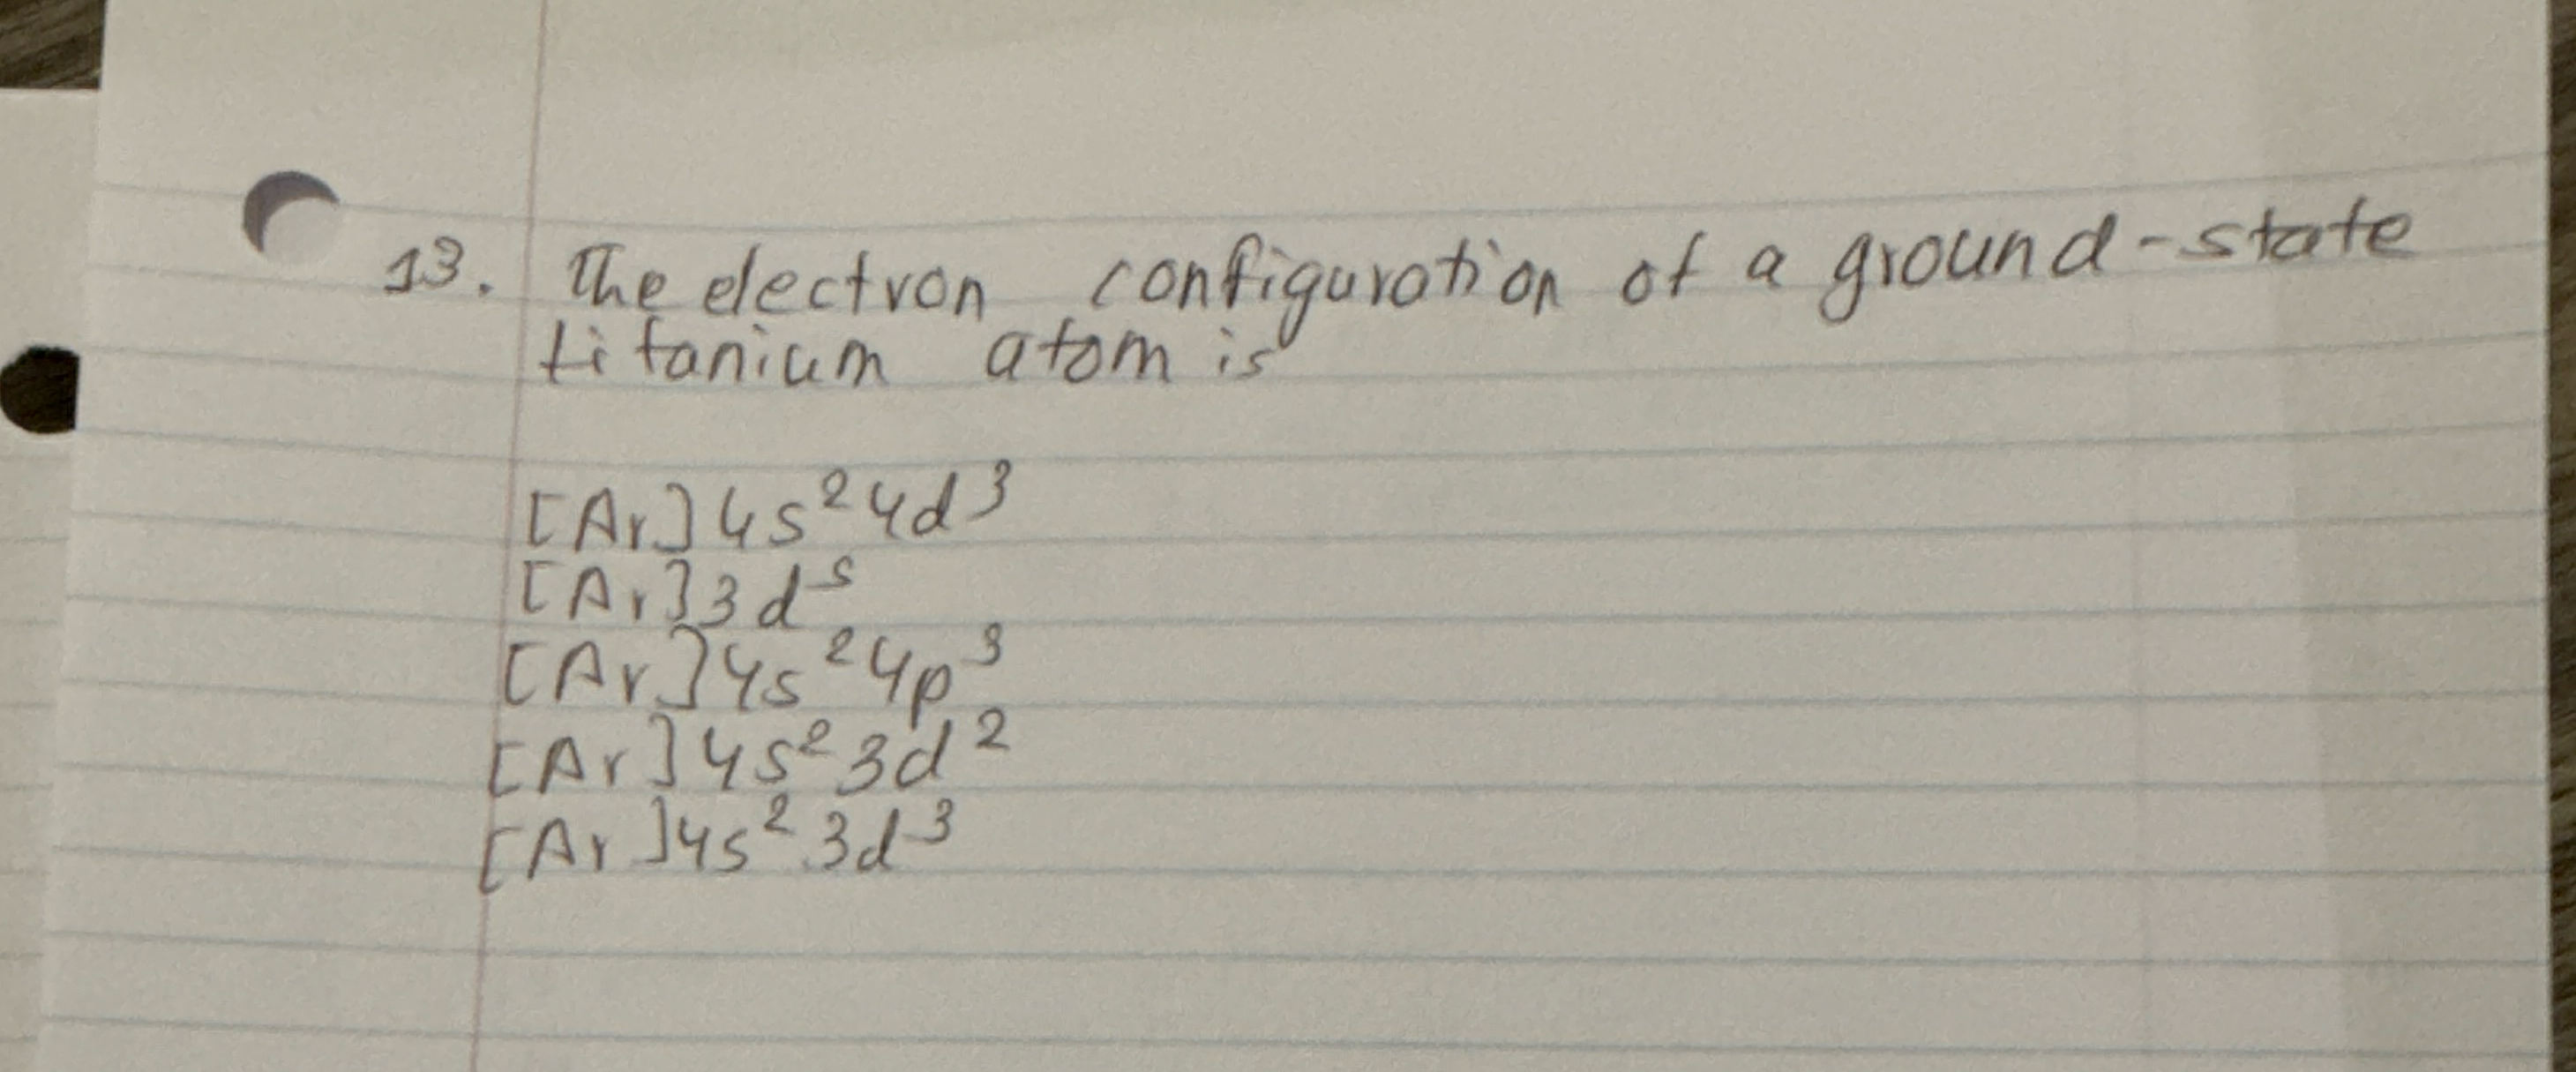 13. The electron configuration of a ground-state
titanium atom is
[Ar]4s²4d³
[Ar]3d⁵
[Ar]4s²4p³
[Ar]4s²3d²
[Ar]4s²3d³